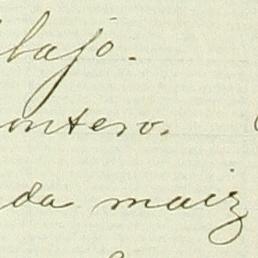 bajo.
ntero.
da maiz